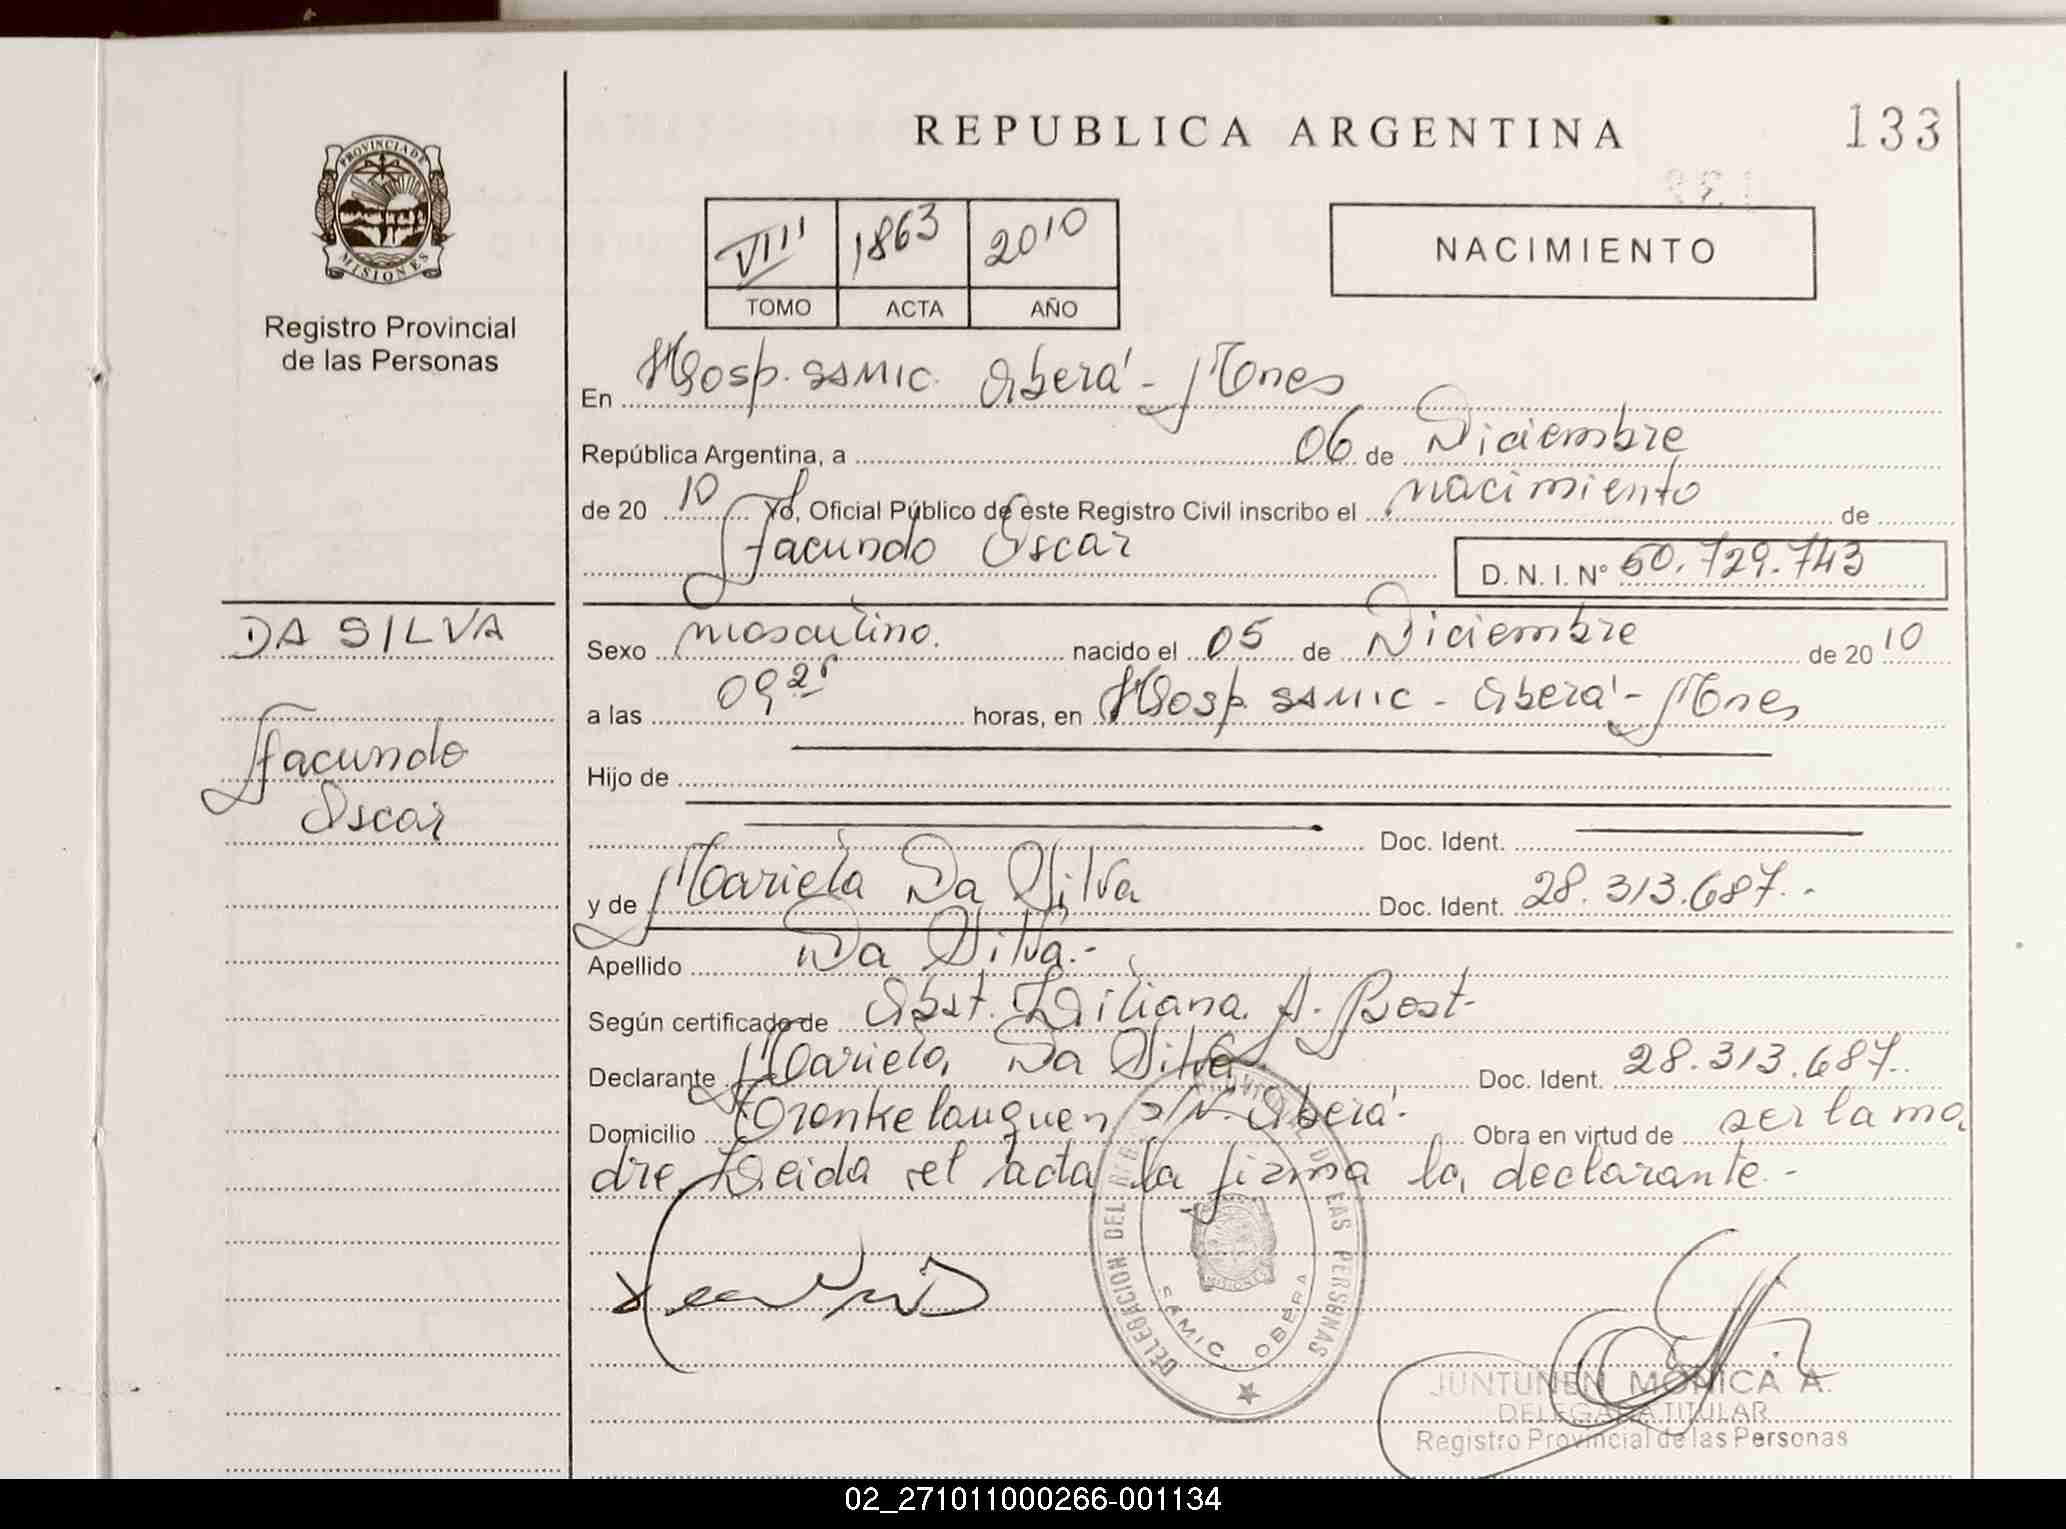 REPUBLICA ARGENTINA
133
PROVINCIA DE
MISIONES
Registro Provincial
de las Personas
VIII 1863 2010
TOMO ACTA AÑO
NACIMIENTO
En Hosp. SAMIC. Oberá - Mnes
República Argentina, a 06 de Diciembre
de 20 10 Yo, Oficial Público de este Registro Civil inscribo el nacimiento de
Facundo Oscar D. N. I. Nº 50.729.743
DA SILVA
Facundo
Oscar
Sexo masculino. nacido el 05 de Diciembre de 20 10
a las 09 horas, en Hosp. SAMIC - Oberá - Mnes
Hijo de
Doc. Ident.
y de Mariela Da Silva Doc. Ident. 28.313.687.-
Apellido Da Silva.-
Según certificado de Obst. Liliana A. Bost-
Declarante Mariela Da Silva Doc. Ident. 28.313.687..
Domicilio s/N. Oberá. Obra en virtud de ser la ma
dre Leida el acta la firma la declarante.-
DELEGACION DEL REG. PROVINCIAL DE LAS PERSONAS
SAMIC. OBERA
JUNTUNEN MONICA A.
DELEGADA TITULAR
Registro Provincial de las Personas
02_271011000266-001134